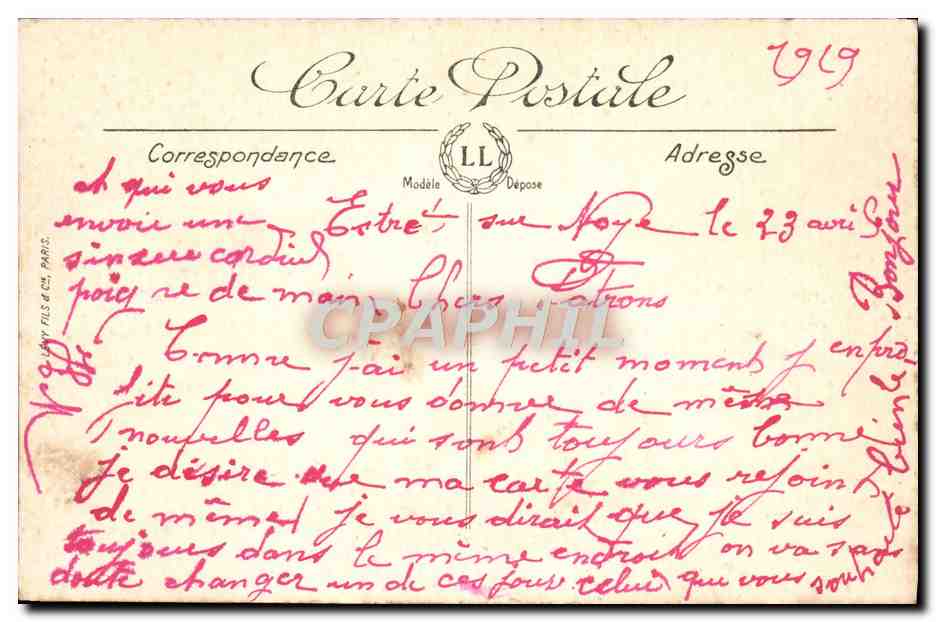 1919
Carte Postale
Correspondance
LL
Adresse
Modèle Déposé
LÉVY FILS & Cie, PARIS.
Estré sur Noye le 23 avril
Chers Patrons
Comme j'ai un petit moment j en pro
fite pour vous donner de mes
nouvelles qui sont toujours bonne
je désire que ma carte vous rejoint
de même je vous dirait que je suis
toujours dans le même endroit on va sans
doute changer un de ces jour celui que vous
souhaite bien le Bonjour
et qui vous
envoie une
sincere cordial
poig ne de main
CPAPHIL